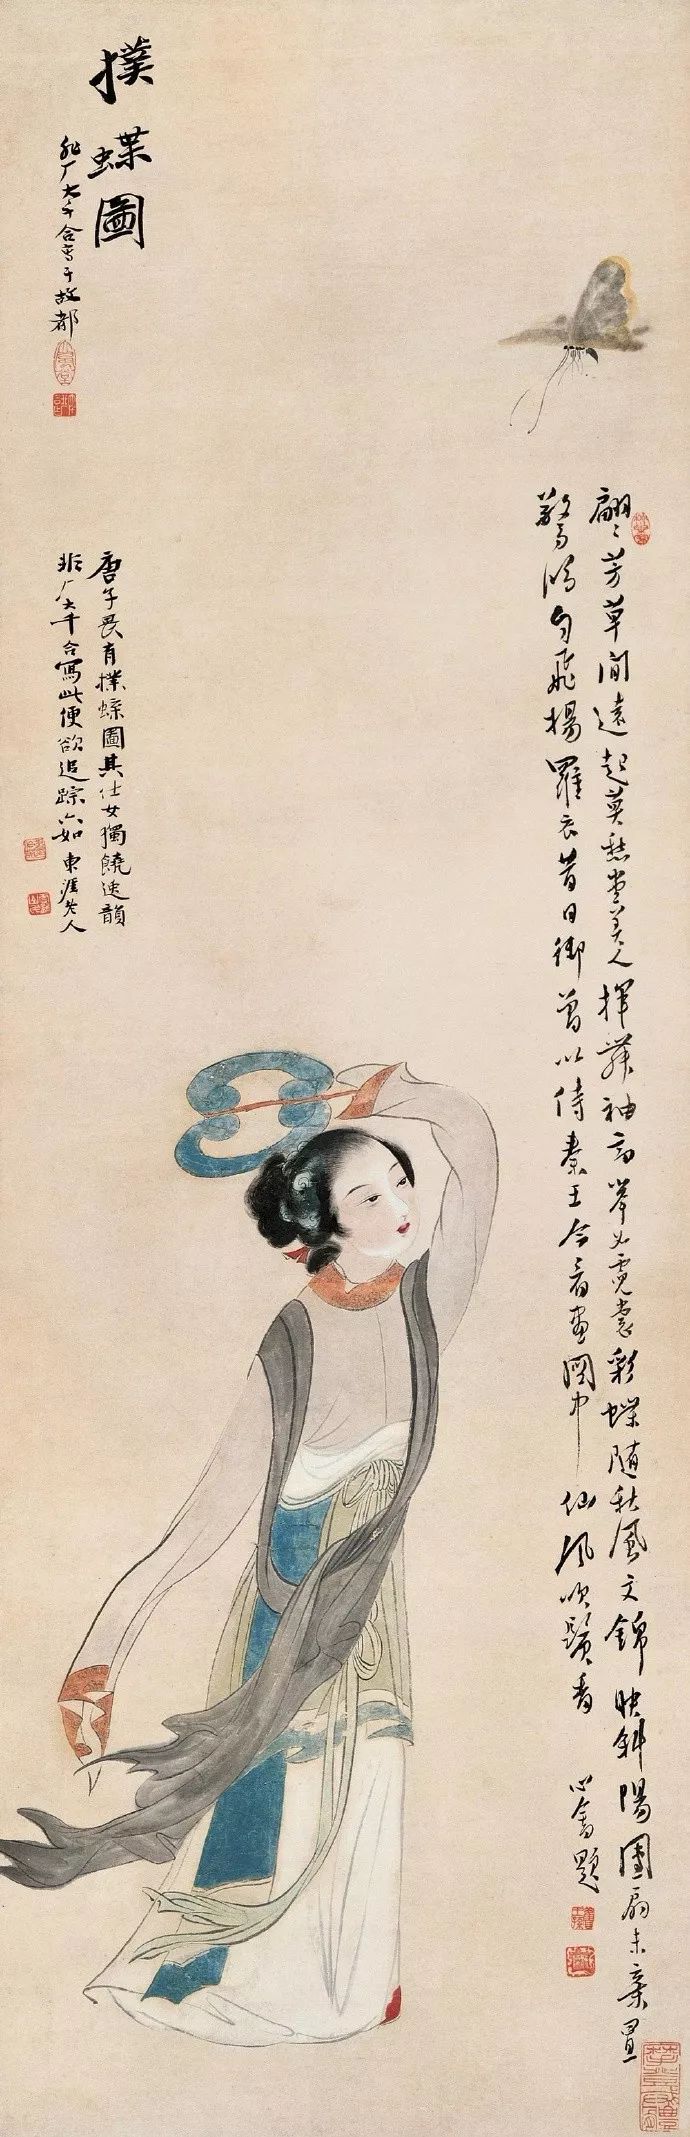 撲蝶圖
非厂大千合寫于故都
翩〻芳草間遠起莫愁堂美人揮舞袖高舉如霓裳彩蝶隨秋風文錦映斜陽團扇未棄置
驚鴻自飛揚羅衣昔日御曾以侍秦王今看畫圖中仙風吹鬢香
心畬題
唐子畏有撲蝶圖其仕女獨饒逸韻
非厂大千合寫此便欲追踪六如 東涯老人